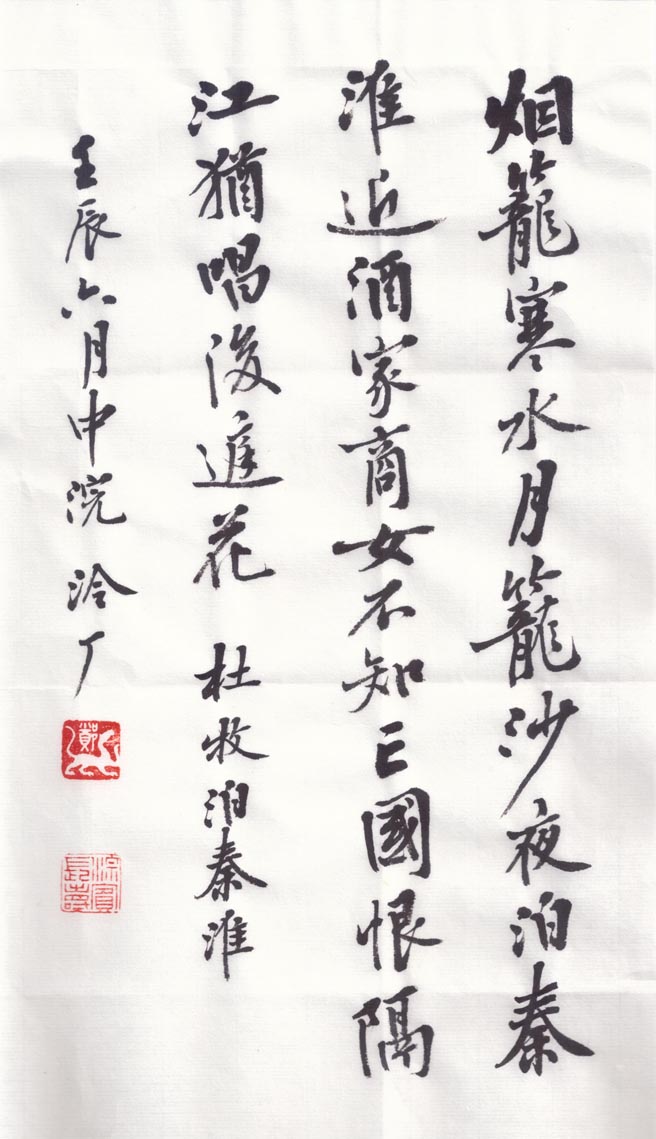 烟籠寒水月籠沙夜泊秦
淮近酒家商女不知亡國恨隔
江猶唱後庭花 杜牧泊秦淮
壬辰六月中浣 泠厂